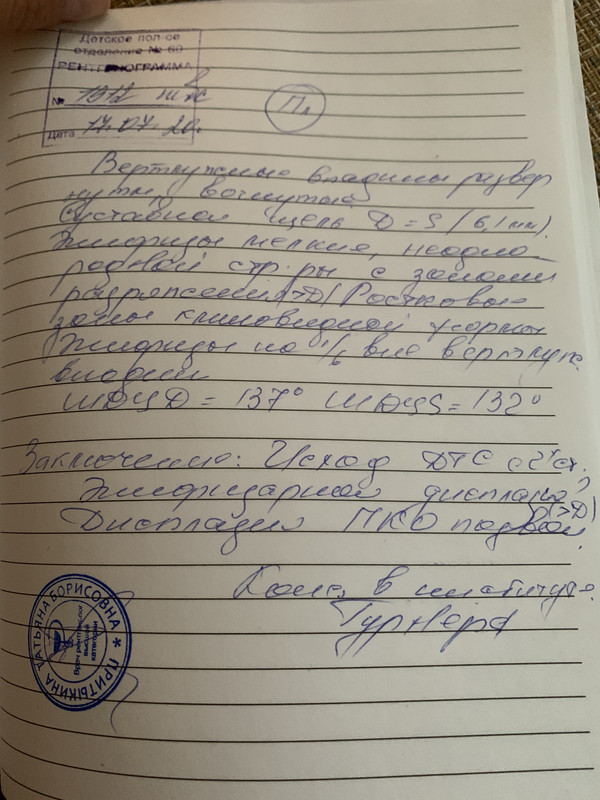 Детское пол-ое
отделение № 60
РЕНТГЕНОГРАММА
№ 1912 
Дата 17.07.20г.
Вертлужные впадины развер
нуты, вогнутые
Суставная щель D=S (6,1 мм).
Эпифизы мелкие, неодно-
родной стр-ры с зонами
разряжения (>D) Ростковые
зоны клиновидной формы
Эпифизы на 1/6 вне вертлужн.
впадин
ШДУД = 137° ШДУS = 132°
Заключение: Исход ДТС с 2х ст.
Эпифизарная дисплазия?
(>D)
Дисплазия ПКО подвзд
Конс. в институте
Турнера
ПРИТЫКИНА ТАТЬЯНА БОРИСОВНА *
Врач рентгенолог
высшей
категории